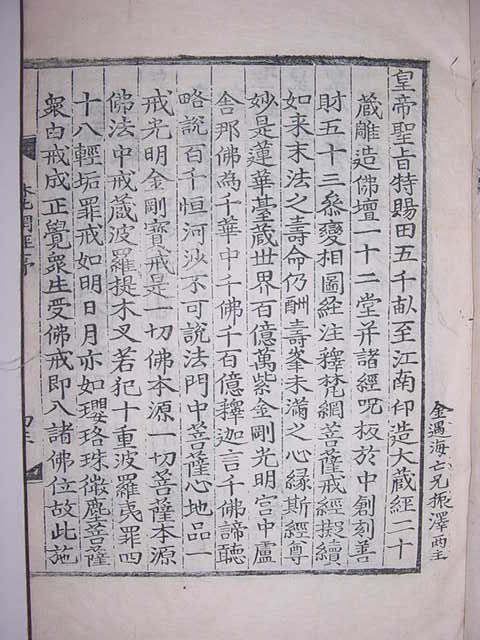 金遇海亡兄振澤兩主
皇帝聖旨特賜田五千畝至江南印造大蔵經二十
蔵雕造佛壇一十二堂并諸經呪板於中創刻善
財五十三叅變相圖経注釋梵網菩薩戒經擬續
如来末法之壽命仍酬壽峯未滿之心縁斯經尊
妙是蓮華臺蔵世界百億萬紫金剛光明宫中盧
舍那佛為千華中千佛千百億釋迦言千佛諦聽
略說百千恒河沙不可說法門中菩薩心地品一
戒光明金剛寳戒是一切佛本源一切菩薩本源
佛法中戒蔵波羅提木叉若犯十重波羅夷罪四
十八輕垢罪戒如明日月亦如瓔珞珠微塵菩薩
衆由戒成正覺衆生受佛戒即入諸佛位故此施
梵網經序